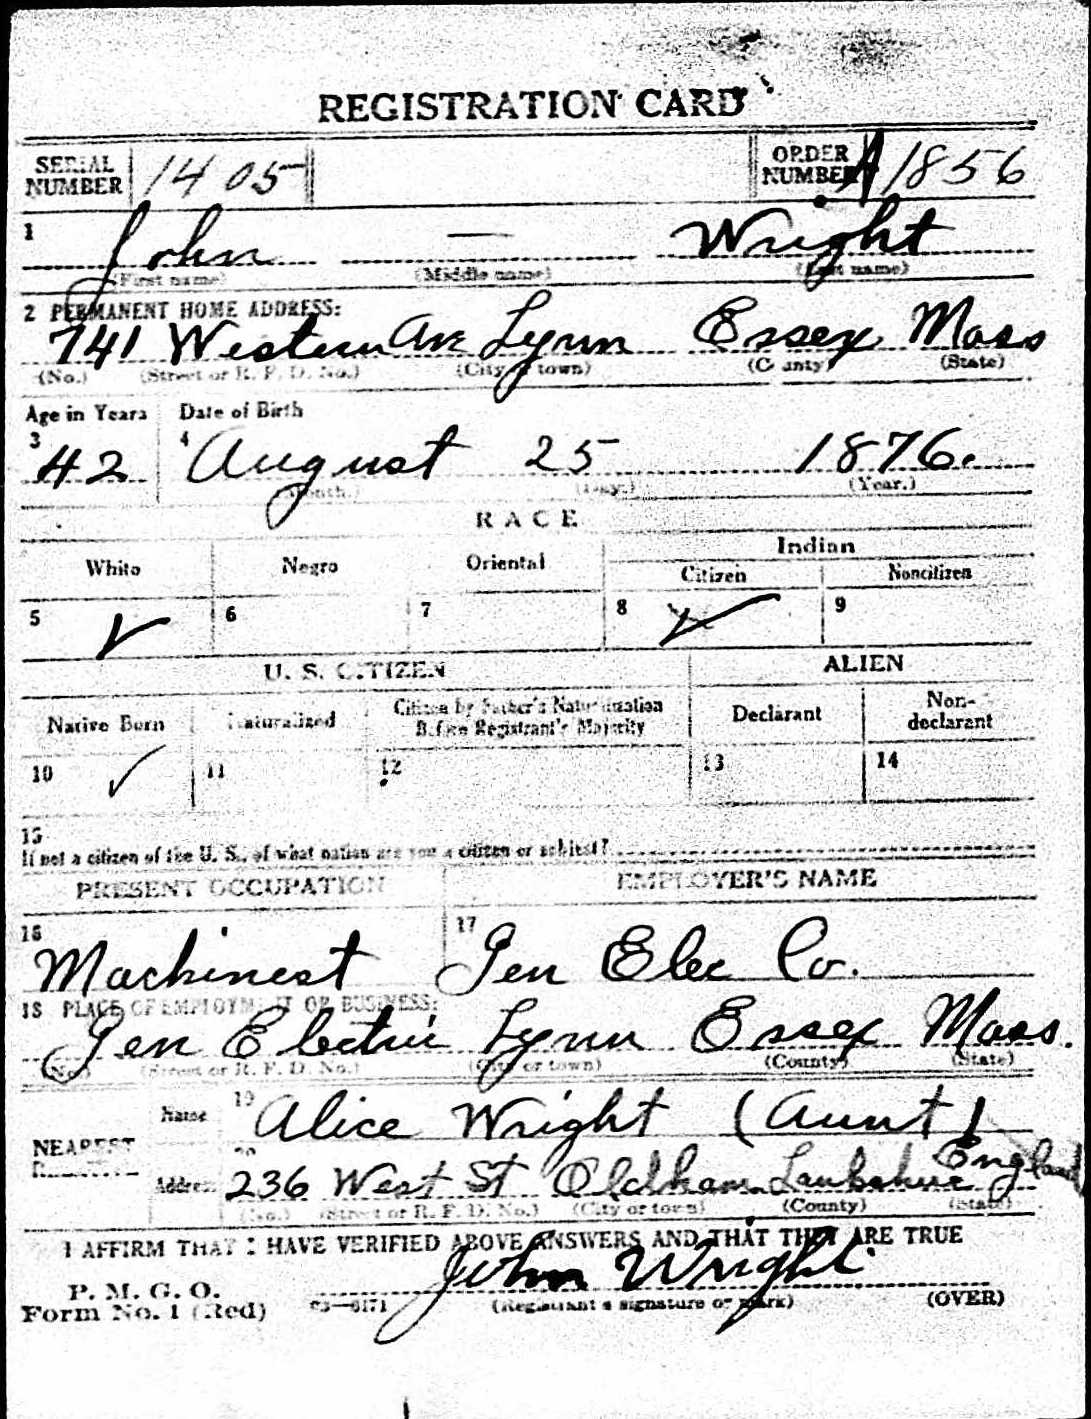 REGISTRATION CARD
SERIAL NUMBER 1405 ORDER NUMBER A 1856
1 John — Wright
(First name) (Middle name) (Last name)
2 PERMANENT HOME ADDRESS:
741 Western Ave Lynn Essex Mass
(No.) (Street or R. F. D. No.) (City or town) (County) (State)
Age in Years Date of Birth
3 42 4 August 25 1876.
(Month.) (Day.) (Year.)
RACE
White Negro Oriental Indian
Citizen Noncitizen
5 ✓ 6 7 8 ✓ 9
U. S. CITIZEN ALIEN
Native Born Naturalized Citizen by Father's Naturalization Before Registrant's Majority Declarant Non-declarant
10 ✓ 11 12 13 14
15
If not a citizen of the U. S., of what nation are you a citizen or subject?
PRESENT OCCUPATION EMPLOYER'S NAME
16 Machinest 17 Gen Elec Co.
18 PLACE OF EMPLOYMENT OR BUSINESS:
Gen Electric Lynn Essex Mass.
(No.) (Street or R. F. D. No.) (City or town) (County) (State)
NEAREST RELATIVE
Name 19 Alice Wright (Aunt)
Address 20 236 West St Oldham England
(No.) (Street or R. F. D. No.) (City or town) (County) (State)
I AFFIRM THAT I HAVE VERIFIED ABOVE ANSWERS AND THAT THEY ARE TRUE
P. M. G. O.
Form No. 1 (Red) 03—6171 John Wright
(Registrant's signature or mark) (OVER)